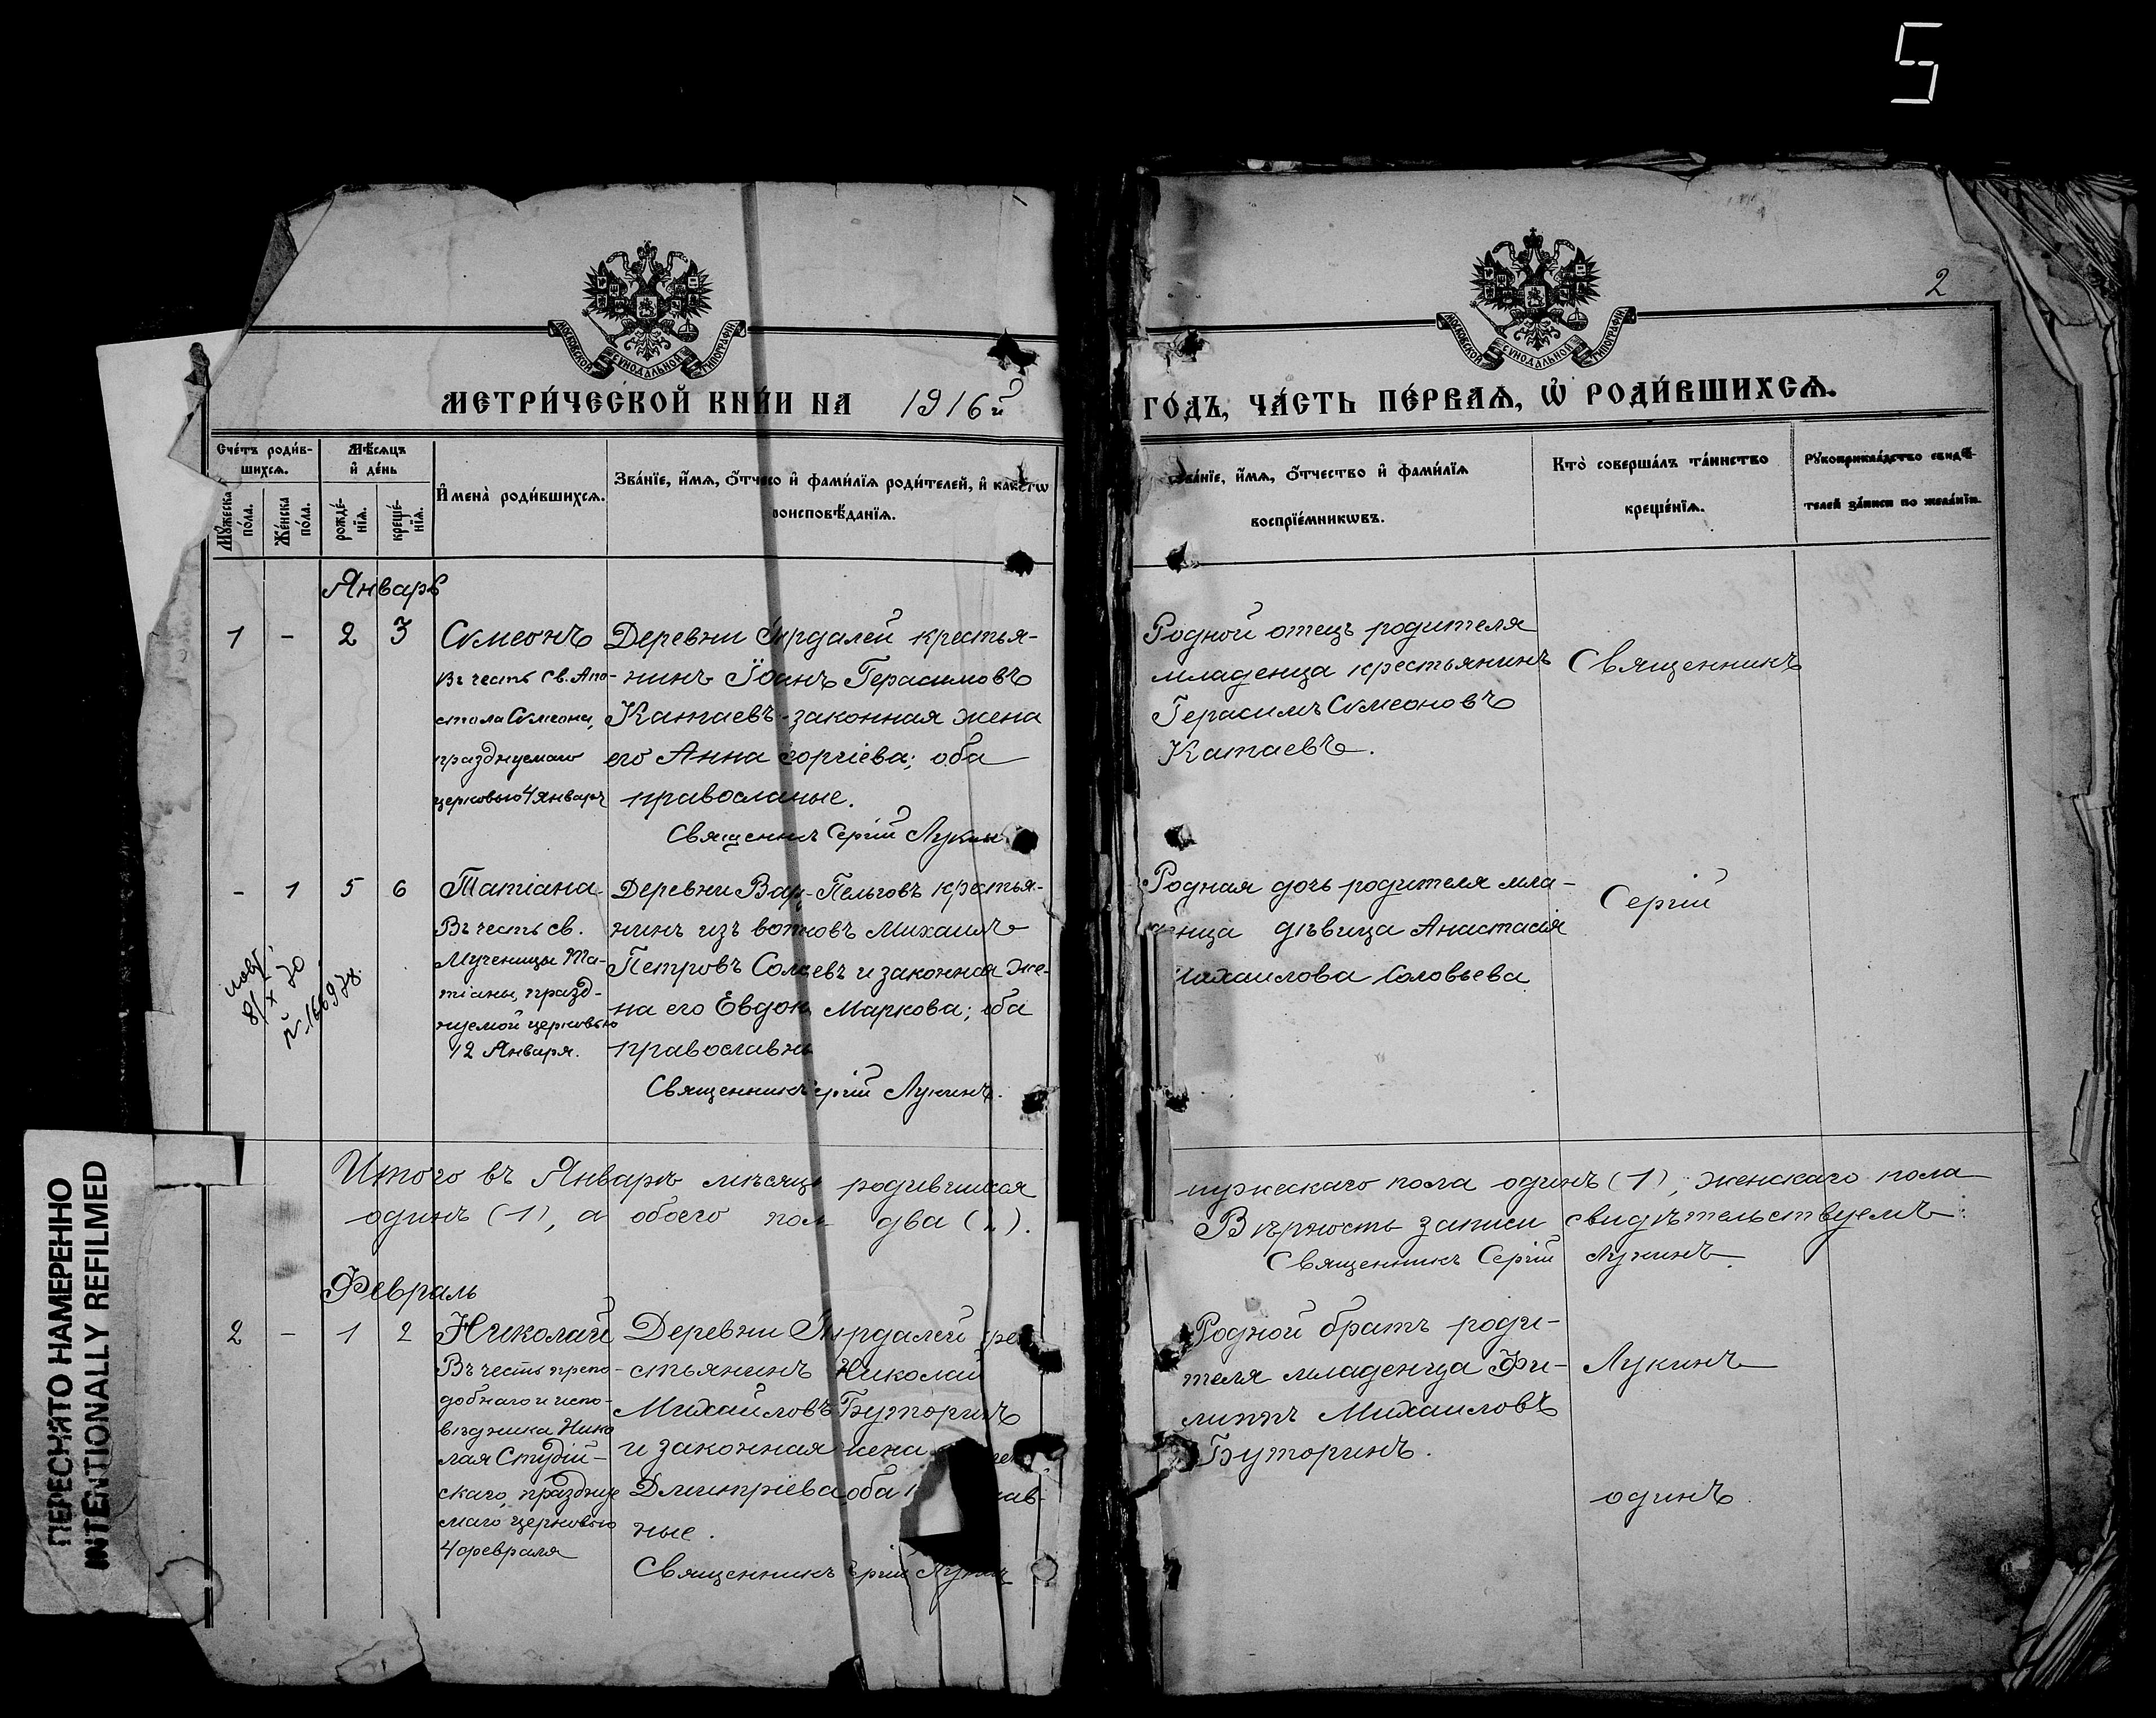 5
2
МОСКОВСКОЙ СѴНОДАЛЬНОЙ ТИПОГРАФІИ
МОСКОВСКОЙ СѴНОДАЛЬНОЙ ТИПОГРАФІИ
МЕТРИ́ЧЕСКОЙ КНИ́ГИ НА 1916й
ГО́ДЪ, ЧА́СТЬ ПЕ́РВАѦ, Ѡ҆ РОДИ́ВШИХСѦ.
Сче́тъ роди́в-
шихсѧ.
Мѣ́сѧцъ
и҆ де́нь
Мꙋ́жеска
по́ла.
Же́нска
по́ла.
рожде́-
нїѧ.
креще́-
нїѧ.
И҆мена̀ роди́вшихсѧ.
Зва́нїе, и҆́мѧ, ѻ҆́тчество и҆ фами́лїѧ роди́телей, и҆ како́гѡ
вѣроисповѣ́данїѧ.
Зва́нїе, и҆́мѧ, ѻ҆́тчество и҆ фами́лїѧ
воспрїе́мникѡвъ.
Кто̀ соверша́лъ та́инство
креще́нїѧ.
Рꙋкоприкла́дство свидѣ́-
телей за́писи по жела́нїю.
Январь
1 - 2 3
Сѵмеонъ
Въ честь Св. Апо-
стола Сѵмеона,
празднуемаго
церковью 4 Январъ
Деревни крестья-
нинъ Іоаннъ Герасимовъ
Катаевъ законная жена
его Анна оргіева; оба
православные.
Священникъ Сергій Лукинъ
Родной отецъ родителя
младенца крестьянинъ
Герасимъ Сѵмеоновъ
Катаевъ.
Священникъ
- 1 5 6
Татіана
Въ честь св.
Мученицы Та-
тіаны, празд-
нуемой церковью
12 Января.
повт.
8/X 70
№ 166978.
Деревни Вар-Пельговъ крестья-
нинъ изъ вотяковъ Михаилъ
Петровъ Соловьевъ и законная же-
на его Евдок Маркова; оба
православны
Священникъ ергій Лукинъ.
Родная дочь родителя мла-
денца дѣвица Анастасія
Михаилова Соловьева
Сергій
Итого въ Январѣ мѣсяцѣ родившихся
одинъ (1), а обоего пола два (2).
мужескаго пола одинъ (1), женскаго пола
Вѣрность записи свидѣтельствуемъ:
Священникъ Сергій Лукинъ.
Февраль
2 - 1 2
Николай
Въ честь препо-
добнаго и испо-
вѣдника Нико
лая Студій-
скаго, праздну
маго церковью
4 февраля
Деревни кре
стьянинъ Николай
Михаиловъ Буторинъ
и законная жена
Дмитріева, оба слав-
ные.
Священникъ ергій Лукинъ
Родной братъ роди-
теля младенца Фи-
липпъ Михаиловъ
Буторинъ.
Лукинъ
одинъ.
ПЕРЕСНЯТО НАМЕРЕННО
INTENTIONALLY REFILMED